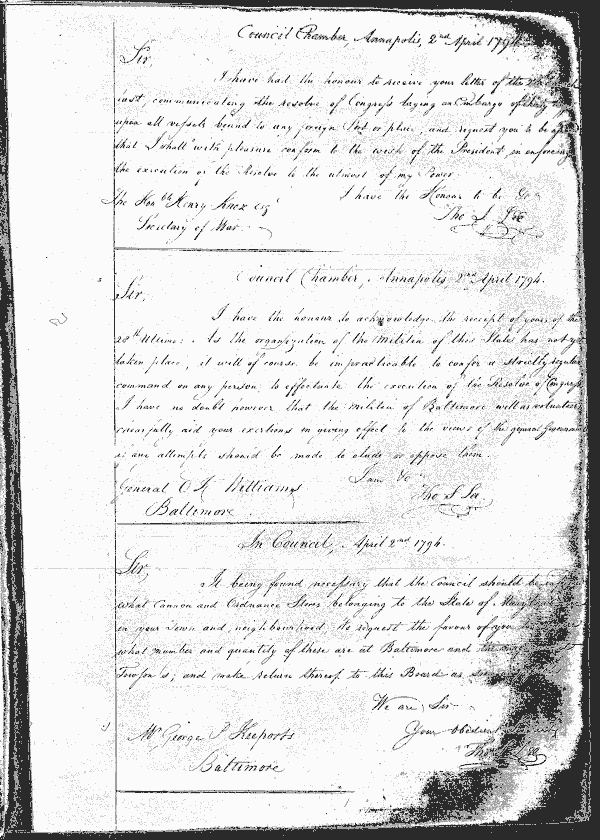 Council Chamber, Annapolis, 2nd April 1794.
Sir,
I have had the honour to receive your letter of the
inst, communicating the resolve of Congress laying an Embargo of thirty
upon all vessels bound to any foreign Port or place, and request you to be
that I shall with pleasure conform to the wish of the President in enforcing
the execution of the Resolve to the utmost of my Power.
I have the Honour to be
The Honble Henry Knox Esqr
Tho S Lee
Secretary of War
Council Chamber, Annapolis, 2nd April 1794.
Sir,
I have the honour to acknowledge the receipt of yours of the
28th Ultimo. As the organization of the Militia of this State has not yet
taken place, it will of course be impracticable to confer a strictly regular
command on any person to effectuate the execution of the Resolve of Congress
I have no doubt however that the militia of Baltimore will as volunteers
cheerfully aid your exertions in giving effect to the views of the general Government
if any attempts should be made to elude or oppose them.
I am &c
General O H Williams
Tho S Lee
Baltimore
In Council, April 2nd 1794.
Sir,
It being found necessary that the Council should be
what Cannon and Ordnance Stores belonging to the State of Maryland
in your Town and neighbourhood. We request the favour of you
what number and quantity of these are at Baltimore and
Towson's; and make return thereof to this Board as
We are Sir
Your obedient
Mr George P Keeports
Tho S Lee
Baltimore